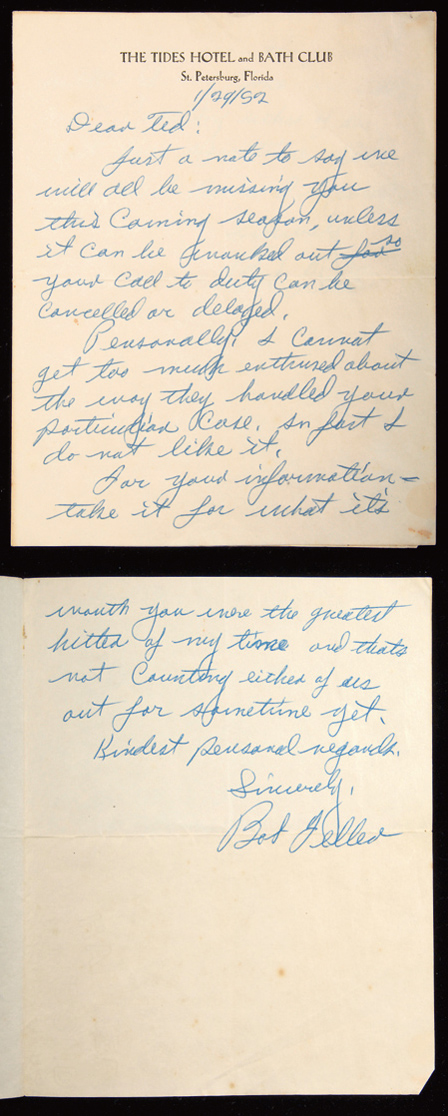 THE TIDES HOTEL and BATH CLUB
St. Petersburg, Florida
1/29/52
Dear Ted:
Just a note to say we
will all be missing you
this Coming season, unless
it can be worked out for so
your Call to duty can be
Cancelled or delayed.
Personally, I Cannot
get too much enthused about
the way they handled your
particular Case. In fact I
do not like it.
For your information –
take it for what it's
worth you were the greatest
hitter of my time and thats
not Counting either of us
out for sometime yet.
Kindest personal regards.
Sincerely,
Bob Feller